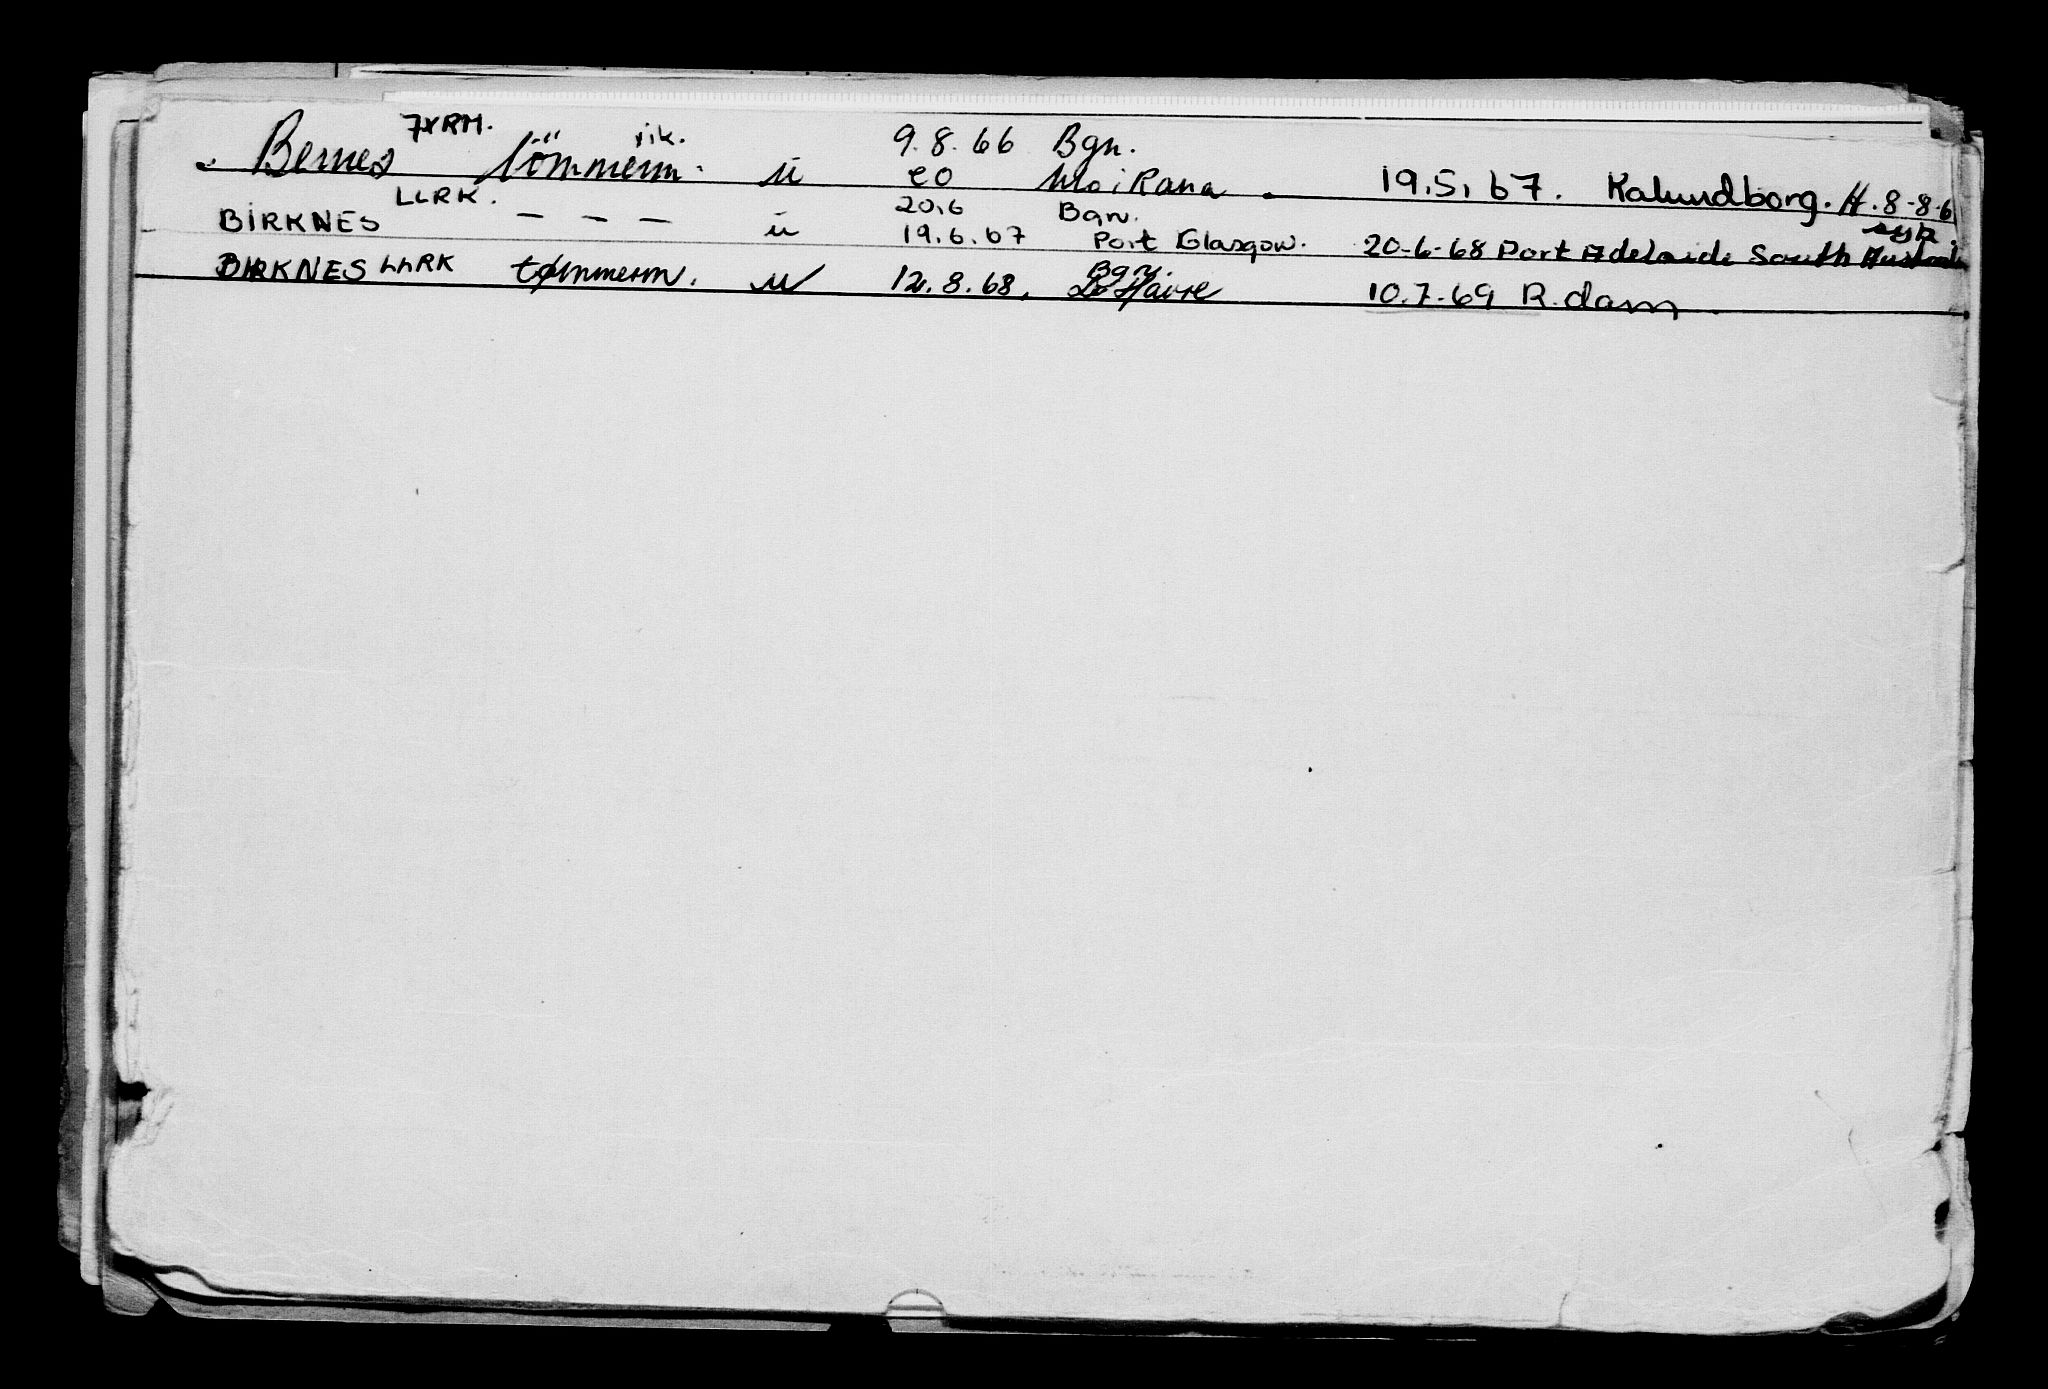 Bernes JXRM. tömmerm. vik. u 9.8.66 Bgn. 19.5.67. Kalundborg. H. 8-8-6
20 Mo i Rana
BIRKNES LLRK. — — — u 20.6 Bgn.
19.6.67 Port Glasgow. 20-6-68 Port Adelaide South Australia syk.
BIRKNES LLRK tømmerm. u 12.8.68. Bgn. Le Havre 10.7.69 R.dam.